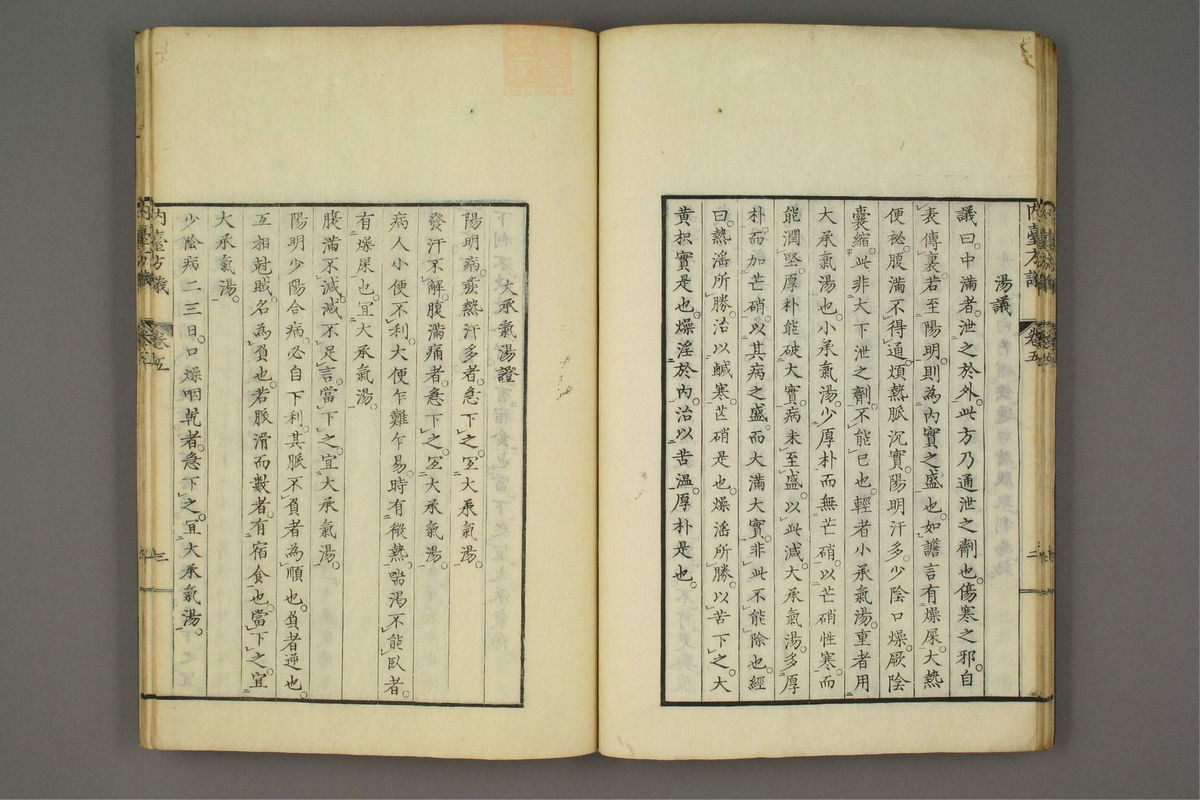 湯議
議曰。中滿者。泄之於外。此方乃通泄之劑也。傷寒之邪。自
表傳裏。若至陽明。則為內實之盛也。如譫言有燥屎。大熱
便祕。腹滿不得通。煩熱脈沉實。陽明汗多。少陰口燥。厥陰
囊縮。此非大下泄之劑。不能已也。輕者小承氣湯。重者用
大承氣湯也。小承氣湯。少厚朴而無芒硝。以芒硝性寒。而
能潤堅。厚朴能破大實。病未至盛。以此減。大承氣湯。多厚
朴。而加芒硝。以其病之盛。而大滿大實。非此不能除也。經
曰。熱滛所勝。治以鹹寒。芒硝是也。燥滛所勝。以苦下之。大
黃枳實是也。燥淫於內。治以苦溫。厚朴是也。
內臺方議 卷五 二
大承氣湯證
陽明病。發熱汗多者。急下之。宜大承氣湯。
發汗不解。腹滿痛者。急下之。宜大承氣湯。
病人小便不利。大便乍難乍易。時有微熱。喘渴不能臥者。
有燥屎也。宜大承氣湯。
腹滿不減。減不足言。當下之。宜大承氣湯。
陽明少陽合病。必自下利。其脈不負者為順也。負者逆也。
互相尅賊。名為負也。若脈滑而數者。有宿食也。當下之。宜
大承氣湯。
少陰病二三日。口燥咽乾者。急下之。宜大承氣湯。
內臺方議 卷五 三